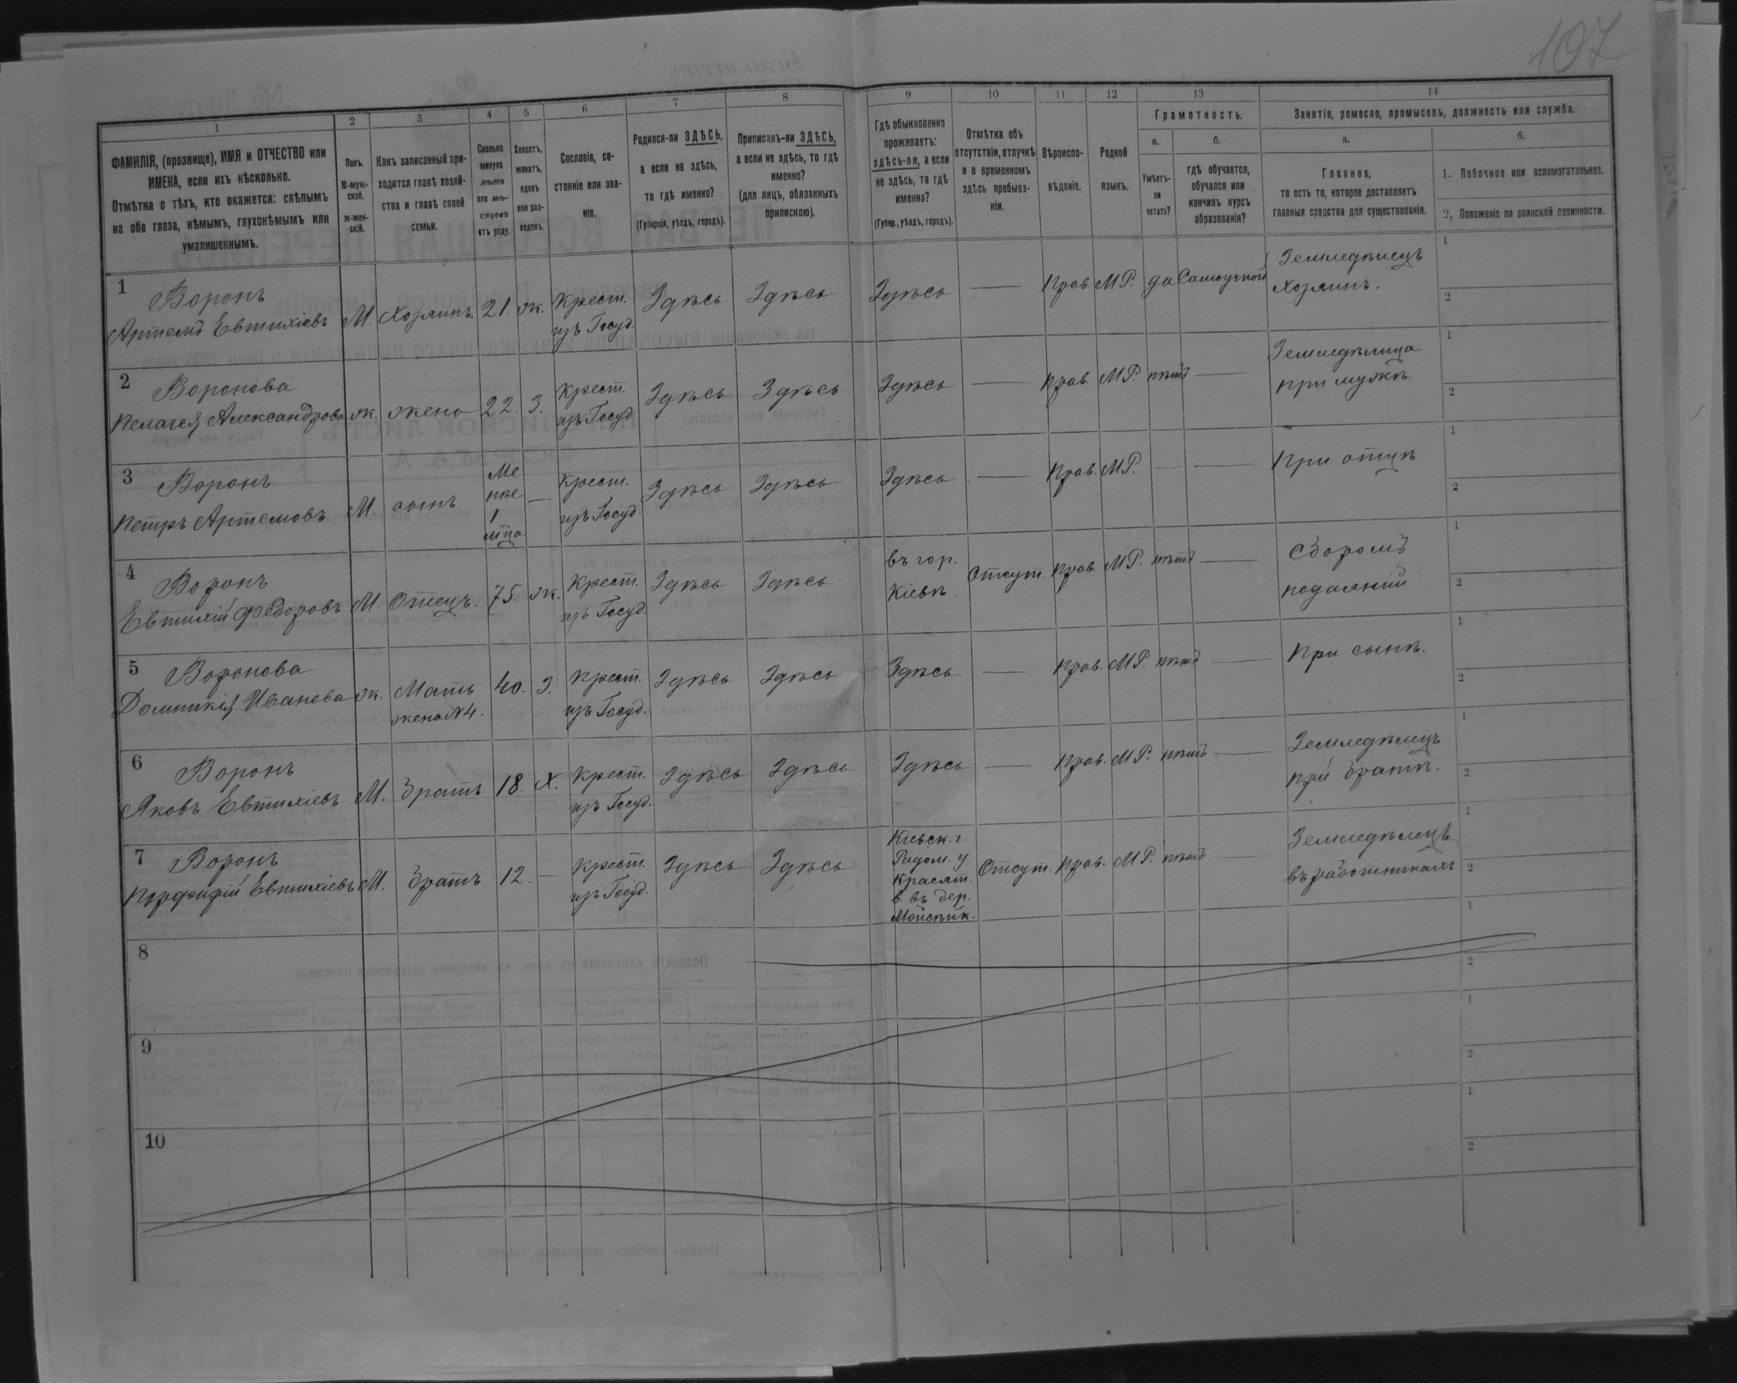 107
1
2
3
4
5
6
7
8
9
10
11
12
13
14
ФАМИЛІЯ, (прозвище), ИМЯ и ОТЧЕСТВО или
ИМЕНА, если ихъ нѣсколько.
Отмѣтка о тѣхъ, кто окажется: слѣпымъ
на оба глаза, нѣмымъ, глухонѣмымъ или
умалишеннымъ.
Полъ.
М-муж-
ской.
Ж-жен-
скій.
Какъ записанный при-
ходится главѣ хозяй-
ства и главѣ своей
семьи.
Сколько
минуло
лѣтъ
или мѣ-
сяцевъ
отъ роду.
Холостъ,
женатъ,
вдовъ
или раз-
веденъ.
Сословіе, со-
стояніе или зва-
ніе.
Родился-ли ЗДѢСЬ,
а если не здѣсь,
то гдѣ именно?
(Губернія, уѣздъ, городъ).
Приписанъ-ли ЗДѢСЬ,
а если не здѣсь, то гдѣ
именно?
(для лицъ, обязанныхъ
припискою).
Гдѣ обыкновенно
проживаетъ:
здѣсь-ли, а если
не здѣсь, то гдѣ
именно?
(Губер., уѣздъ, городъ).
Отмѣтка объ
отсутствіи, отлучкѣ
и о временномъ
здѣсь пребыва-
ніи.
Вѣроиспо-
вѣданіе.
Родной
языкъ.
Грамотность.
а.
Умѣетъ-
ли
читать?
б.
гдѣ обучается,
обучался или
кончилъ курсъ
образованія?
Занятіе, ремесло, промыселъ, должность или служба.
а.
Главное,
то есть то, которое доставляетъ
главныя средства для существованія.
б.
1. Побочное или вспомогательное.
2. Положеніе по воинской повинности.
1
Воронъ
Артемъ Евтихіевъ
М.
Хозяинъ.
21.
ж.
Крест.
изъ Госуд.
Здѣсь
Здѣсь
Здѣсь
—
Прав.
М.Р.
да
Самоучкой
Земледѣлецъ
Хозяинъ.
1
2
2
Воронова
Пелагея Александрова
ж.
жена
22.
З.
Крест.
изъ Госуд.
Здѣсь
Здѣсь
Здѣсь
—
Прав.
М.Р.
нѣтъ
—
Земледѣлица
при мужѣ.
1
2
3
Воронъ
Петръ Артемовъ
М.
сынъ
Ме
нѣе
1
мѣца
—
Крест.
изъ Госуд.
Здѣсь
Здѣсь
Здѣсь
—
Прав.
М.Р.
—
—
При отцѣ
1
2
4
Воронъ
Евтихій Федоровъ
М.
Отецъ.
75.
ж.
Крест.
изъ Госуд.
Здѣсь
Здѣсь
въ гор.
Кіевѣ.
Отсут.
Прав.
М.Р.
нѣтъ
—
Сборомъ
подаяній
1
2
5
Воронова
Домникія Иванова
ж.
Мать
жена №4.
40.
З.
Крест.
изъ Госуд.
Здѣсь
Здѣсь
Здѣсь
—
Прав.
М.Р.
нѣтъ
—
При сынѣ.
1
2
6
Воронъ
Яковъ Евтихіевъ
М.
братъ
18.
Х.
Крест.
изъ Госуд.
Здѣсь
Здѣсь
Здѣсь
—
Прав.
М.Р.
нѣтъ
—
Земледѣлецъ
при братѣ.
1
2
7
Воронъ
Порфирій Евтихіевъ
М.
братъ
12.
—
Крест.
изъ Госуд.
Здѣсь
Здѣсь
Кіевск. г.
Радом. у.
Красят.
в. въ дер.
Мойсѣйк.
Отсут.
Прав.
М.Р.
нѣтъ
—
Земледѣлецъ
въ работникахъ
1
2
8
1
2
9
1
2
10
1
2